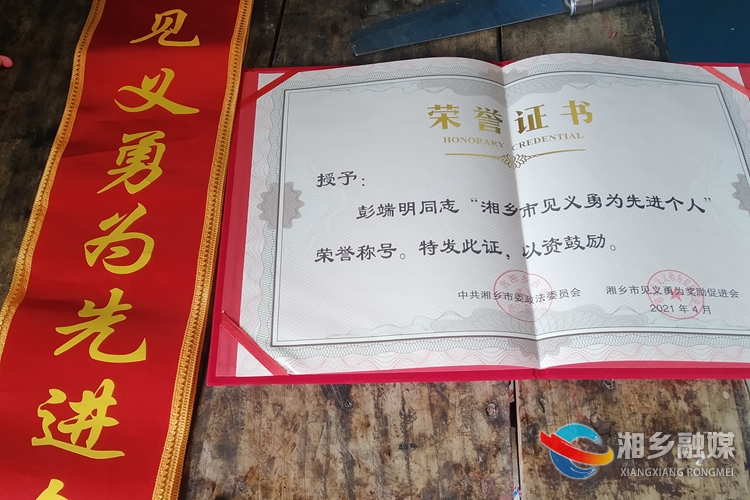 见义勇为先进
荣誉证书
HONORARY CREDENTIAL
授予：
彭端明同志“湘乡市见义勇为先进个人”
荣誉称号。特发此证，以资鼓励。
中共湘乡市委政法委员会 湘乡市见义勇为奖励促进会
2021年4月
湘乡融媒
XIANGXIANG RONGMEI